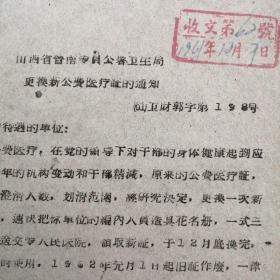 收文第62號
1961年12月9日
山西省晋南专员公署卫生局
更换新公费医疗証的通知
(61)卫财郭字第198号
待遇的单位:
费医疗,在党的领导下对干部的身体健康起到应
年的机构变动和干部精减,原来的公费医疗証,
澄清人数,划清范围,經研究决定,更换一次新
,速庆把你单位的編內人員造具花名册,一式三
送交专人民医院,領取新証,于12月底換完,
时使用,1962年元月1日起旧証作废,一律